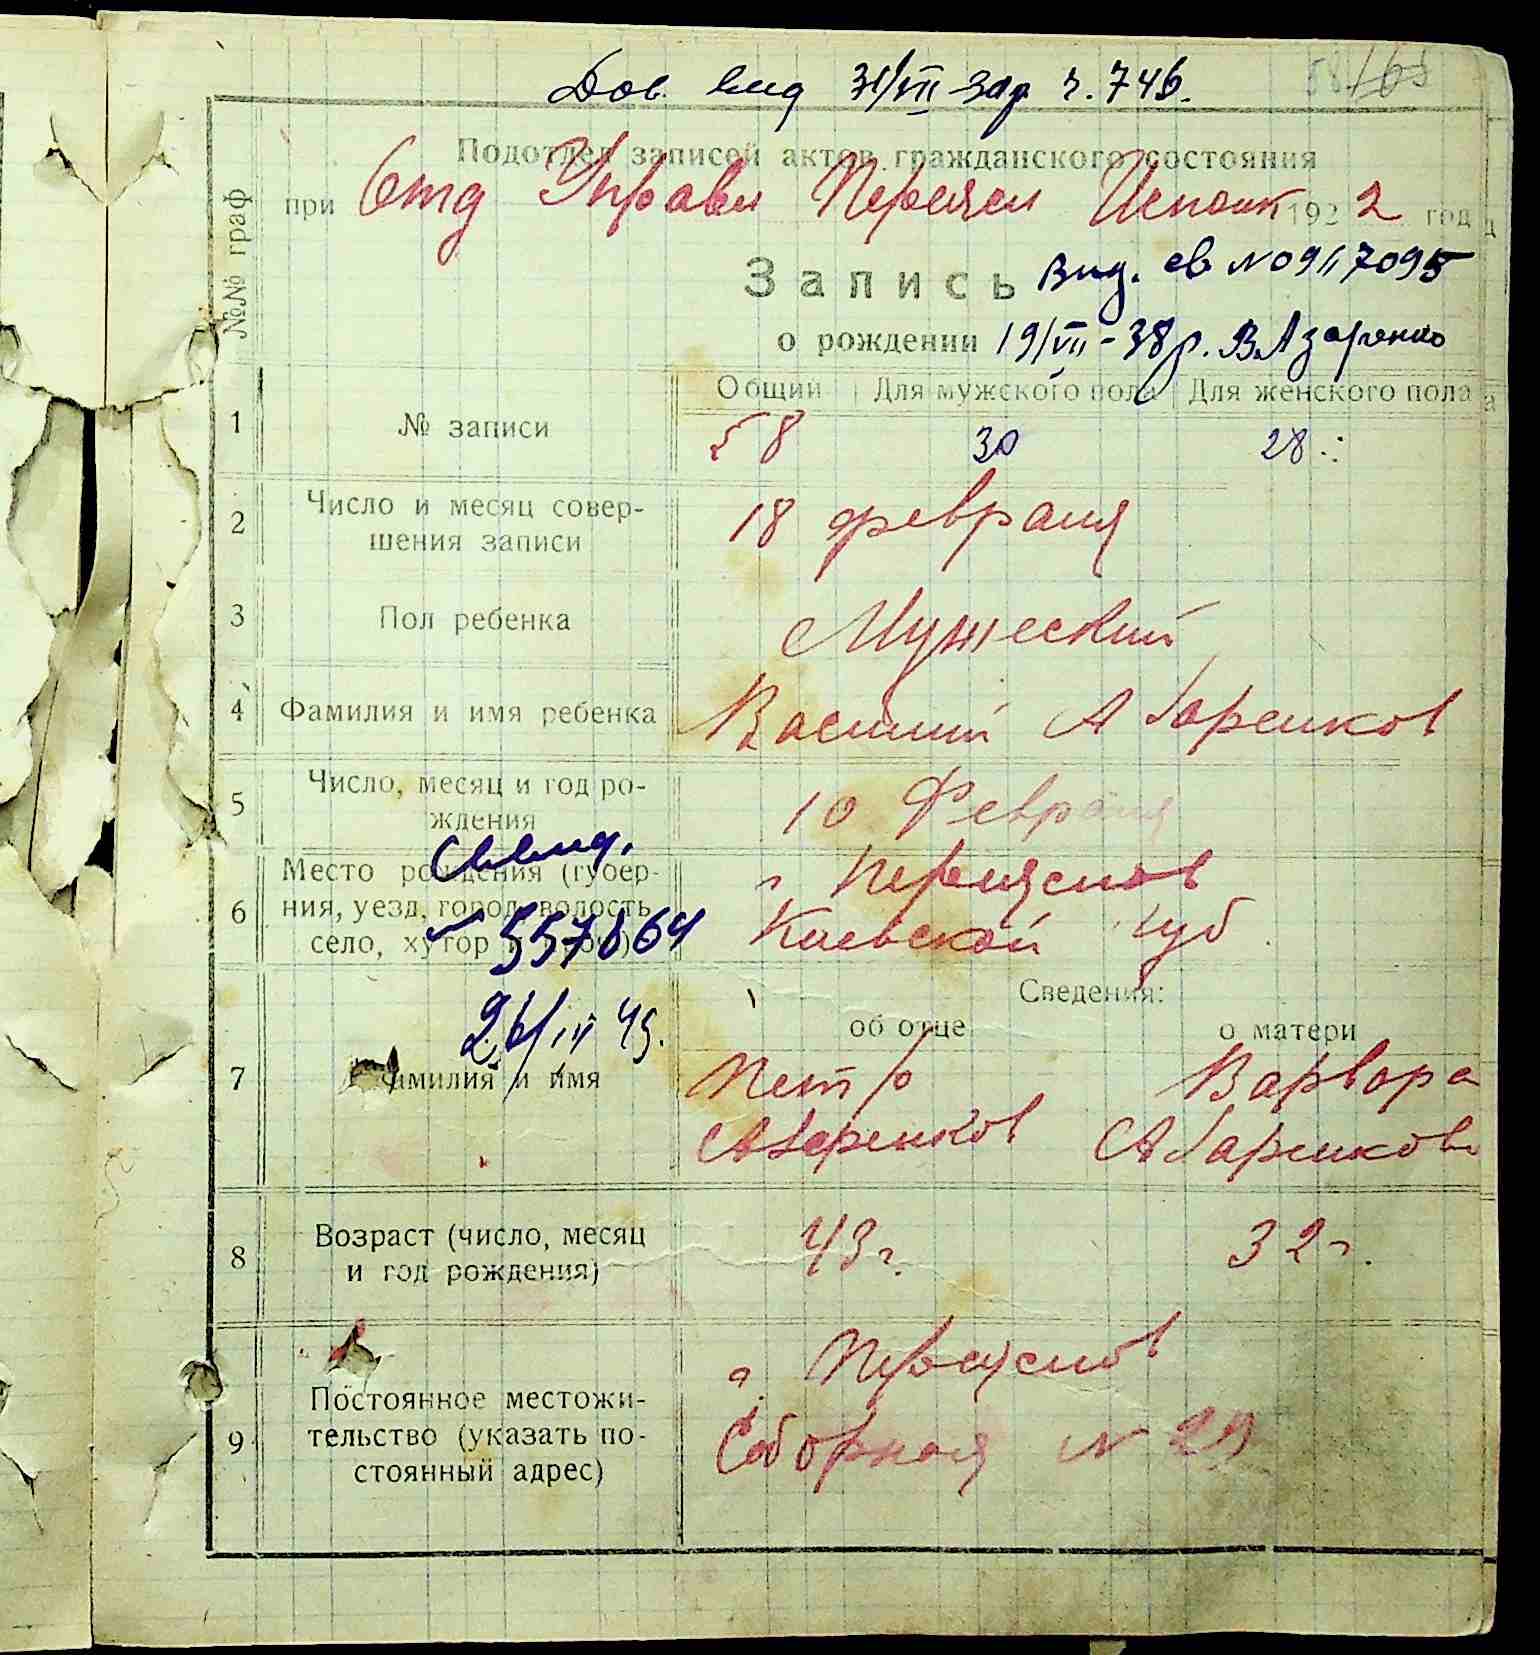 Дов. вид 31/VII зар ч. 746.
Подотдел записей актов гражданского состояния
при Отд Управл Переясл Исполк 1922 год
Запись
Вид. св №0917095
о рождении
19/VII-38р. В Азаренко
№№ граф
Общий Для мужского пола Для женского пола
1 № записи 58 30 28
2 Число и месяц совер-
шения записи
18 февраля
3 Пол ребенка Мужеский
4 Фамилия и имя ребенка Василий Абаренков
5 Число, месяц и год ро-
ждения
10 Февраля
Свид.
6 Место рождения (губер-
ния, уезд, город, волость
село, хутор
г Переяслов
Киевской губ
557864
26/III 45.
Сведения:
об отце о матери
7 Фамилия и имя
Петр Варвара
Абаренков Абаренкова
8 Возраст (число, месяц
и год рождения)
43 г. 32 г.
9 Постоянное местожи-
тельство (указать по-
стоянный адрес)
г. Переяслов
Соборная № 29